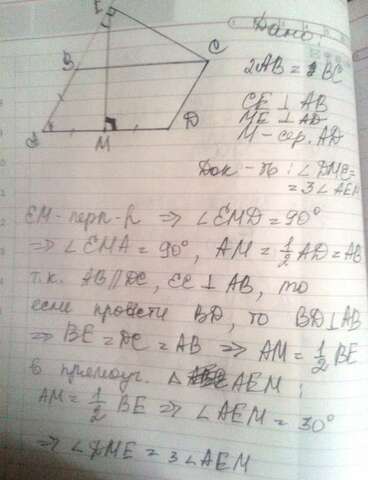 E
Дано
B
C
2AB = BC
CE ⊥ AB
ME ⊥ AD
M - сер. AD
A
M
D
Док-ть: ∠DMC =
= 3∠AEM
EM - перп-р ⇒ ∠EMD = 90°
⇒ ∠EMA = 90°, AM = 1/2 AD = AB
т.к. AB || DC, EC ⊥ AB, то
если провести BD, то BD ⊥ AB
⇒ BE = DC = AB ⇒ AM = 1/2 BE
в прямоуг. △ AEM:
AM = 1/2 BE ⇒ ∠AEM = 30°
⇒ ∠DME = 3∠AEM